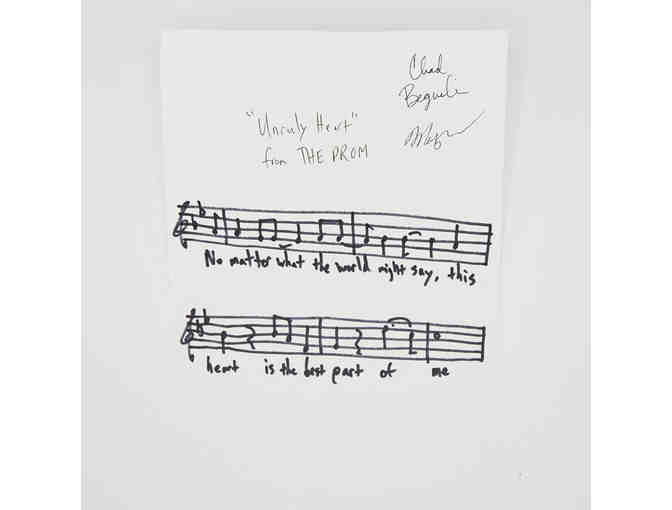 Chad
Beguelin
"Unruly Heart"
from THE PROM
No matter what the world might say, this
heart is the best part of me